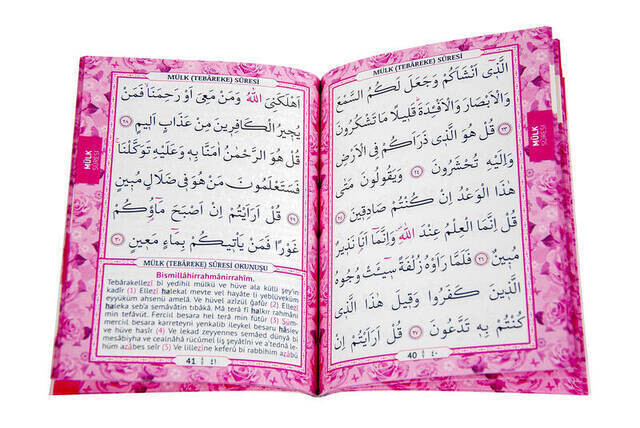 MÜLK (TEBÂREKE) SÛRESİ
الَّذِى اَنْشَاَكُمْ وَجَعَلَ لَكُمُ السَّمْعَ
وَالْاَبْصَارَ وَالْاَفْـِٕدَةَ قَلِيلًا مَا تَشْكُرُونَ
﴿٢٣﴾ قُلْ هُوَ الَّذِى ذَرَاَكُمْ فِى الْاَرْضِ
وَاِلَيْهِ تُحْشَرُونَ ﴿٢٤﴾ وَيَقُولُونَ مَتٰى
هٰذَا الْوَعْدُ اِنْ كُنْتُمْ صَادِقِينَ ﴿٢٥﴾
قُلْ اِنَّمَا الْعِلْمُ عِنْدَ اللّٰهِ وَاِنَّمَا اَنَا نَذِيرٌ
مُبِينٌ ﴿٢٦﴾ فَلَمَّا رَاَوْهُ زُلْفَةً سِيـَٔتْ وُجُوهُ
الَّذِينَ كَفَرُوا وَقِيلَ هٰذَا الَّذِى
كُنْتُمْ بِهِ تَدَّعُونَ ﴿٢٧﴾ قُلْ اَرَاَيْتُمْ اِنْ
40 ٤٠
MÜLK
SÛRESİ
MÜLK (TEBÂREKE) SÛRESİ
اَهْلَكَنِىَ اللّٰهُ وَمَنْ مَعِىَ اَوْ رَحِمَنَا فَمَنْ
يُجِيرُ الْكَافِرِينَ مِنْ عَذَابٍ اَلِيمٍ ﴿٢٨﴾
قُلْ هُوَ الرَّحْمٰنُ اٰمَنَّا بِهِ وَعَلَيْهِ تَوَكَّلْنَا
فَسَتَعْلَمُونَ مَنْ هُوَ فِى ضَلَالٍ مُبِينٍ
﴿٢٩﴾ قُلْ اَرَاَيْتُمْ اِنْ اَصْبَحَ مَاؤُكُمْ
غَوْرًا فَمَنْ يَاْتِيكُمْ بِمَاءٍ مَعِينٍ ﴿٣٠﴾
MÜLK
SÛRESİ
MÜLK (TEBÂREKE) SÛRESİ OKUNUŞU
Bismillâhirrahmânirrahîm.
Tebârakellezî bi yedihil mülkü ve hüve ala külli şey'in
kadîr (1) Ellezî halekal mevte vel hayâte li yeblüveküm
eyyüküm ahsenü amelâ. Ve hüvel azîzül ğafûr (2) Ellezî
haleka seb'a semâvâtin tıbâkâ. Mâ terâ fî halkır rahmâni
min tefâvüt. Ferciıl besara hel terâ min fütûr (3) Sum-
merciıl besara karreteyni yenkalib ileykel besaru hâsiev
ve hüve hasîr (4) Ve lekad zeyyennes semâed dünyâ bi
mesâbîyha ve cealnâhâ rücûmel liş şeyâtîni ve a'tednâ le-
hüm azâbes seîr (5) Ve lillezîne keferû bi rabbihim azâbü
41 ٤١